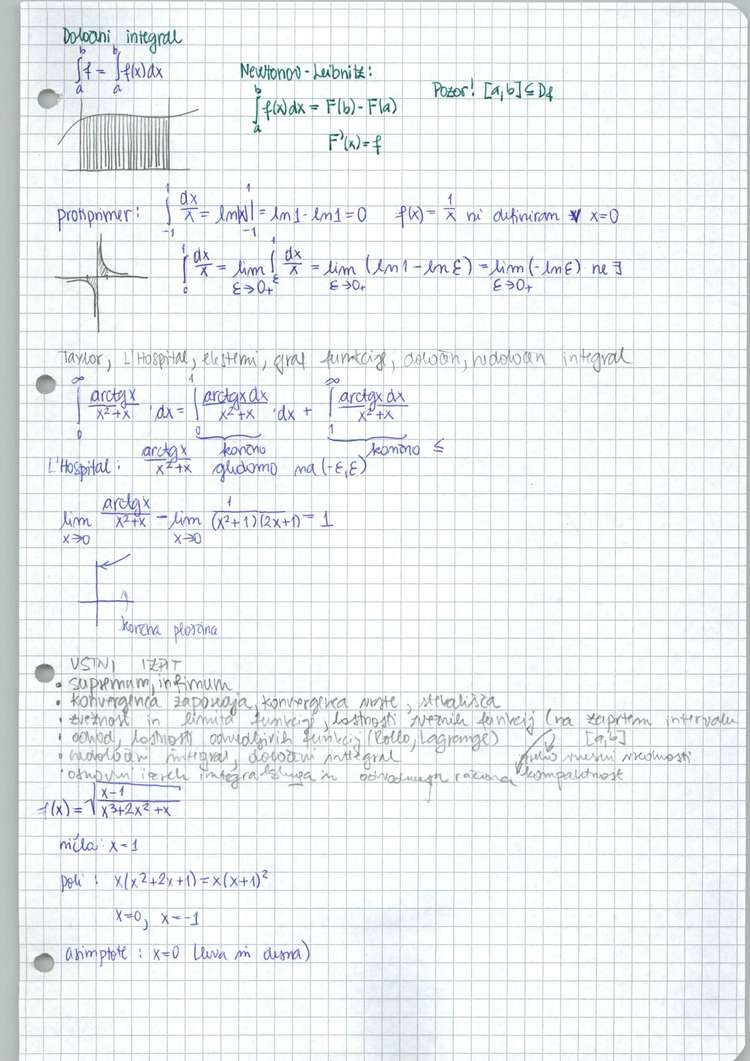 Določni integral
∫_a^b f = ∫_a^b f(x)dx
Newtonov-Leibnitz:
∫_a^b f(x)dx = F(b) - F(a)
F'(x) = f
Pozor! [a,b] ⊆ D_f
protiprimer: ∫_{-1}^1 dx/x = ln|x| |_{-1}^1 = ln1 - ln1 = 0 f(x) = 1/x ni definiram v x=0
∫_0^1 dx/x = lim_{ε→0+} ∫_ε^1 dx/x = lim_{ε→0+} (ln1 - lnε) = lim_{ε→0+} (-lnε) ne ∃
Taylor, L'Hospital, ekstemi, graf funkcije, določn, nedoločn integral
∫_0^∞ arctgx/(x²+x) · dx = ∫_0^1 arctgx dx/(x²+x) · dx + ∫_1^∞ arctgx dx/(x²+x)
končno končno ≤
L'Hospital: arctgx/(x²+x) gledamo na (-ε,ε)
lim_{x→0} arctgx/(x²+x) - lim_{x→0} 1/((x²+1)(2x+1)) = 1
končna ploščina
USTNI IZPIT
• supremum, infimum
• konvergenca zaporedja, konvergenca vrste, stekališča
• zveznost in limita funkcije, lastnosti zveznih funkcij (na zaprtem intervalu
[a,b]
• odvod, lastnosti odvedljivih funkcij (Rollo, Lagrange)
• nedoločni integral, določni integral
• osnovni izrek integralskega in računa
kompaktnost
f(x) = √((x-1)/(x³+2x²+x))
ničla: x=1
poli: x(x²+2x+1) = x(x+1)²
x=0, x=-1
asimptote: x=0 (leva in desna)